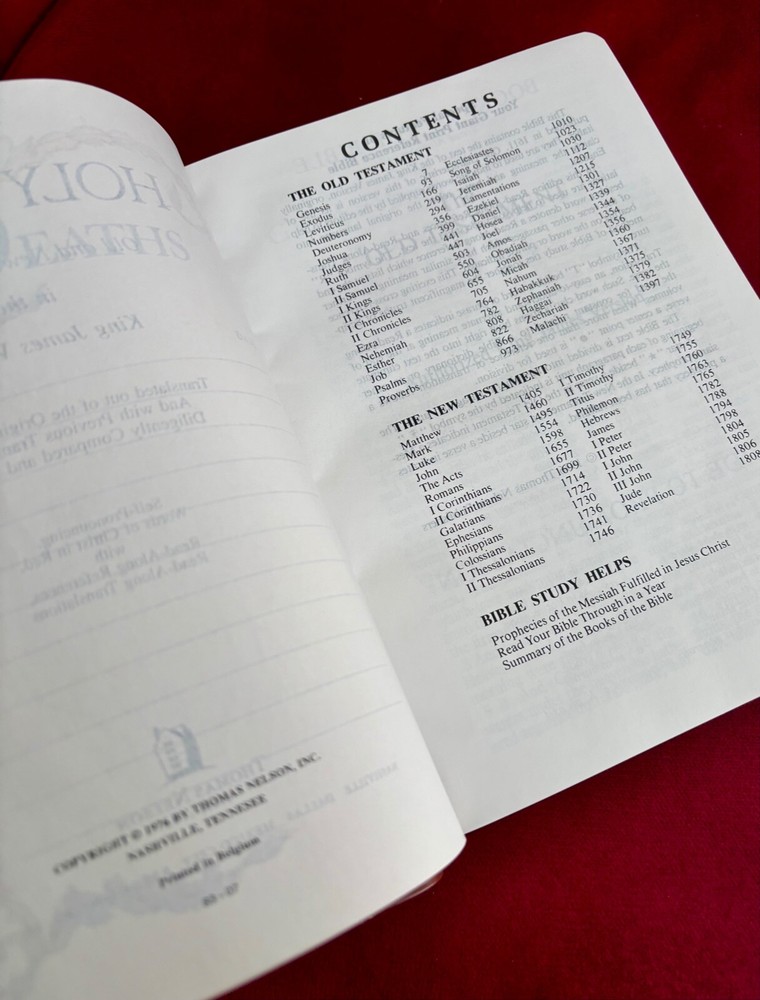 COPYRIGHT © 1976 BY THOMAS NELSON, INC.
NASHVILLE, TENNESEE
Printed in Belgium
CONTENTS
THE OLD TESTAMENT
Genesis 7
Exodus 93
Leviticus 166
Numbers 219
Deuteronomy 294
Joshua 356
Judges 399
Ruth 441
I Samuel 447
II Samuel 503
I Kings 550
II Kings 604
I Chronicles 655
II Chronicles 705
Ezra 764
Nehemiah 782
Esther 808
Job 822
Psalms 866
Proverbs 973
Ecclesiastes 1010
Song of Solomon 1023
Isaiah 1030
Jeremiah 1112
Lamentations 1207
Ezekiel 1215
Daniel 1301
Hosea 1327
Joel 1339
Amos 1344
Obadiah 1354
Jonah 1356
Micah 1360
Nahum 1367
Habakkuk 1371
Zephaniah 1375
Haggai 1379
Zechariah 1382
Malachi 1397
THE NEW TESTAMENT
Matthew 1405
Mark 1460
Luke 1495
John 1554
The Acts 1598
Romans 1655
I Corinthians 1677
II Corinthians 1699
Galatians 1714
Ephesians 1722
Philippians 1730
Colossians 1736
I Thessalonians 1741
II Thessalonians 1746
I Timothy 1749
II Timothy 1755
Titus 1760
Philemon 1763
Hebrews 1765
James 1782
I Peter 1788
II Peter 1794
I John 1798
II John 1804
III John 1805
Jude 1806
Revelation 1808
BIBLE STUDY HELPS
Prophecies of the Messiah Fulfilled in Jesus Christ
Read Your Bible Through in a Year
Summary of the Books of the Bible